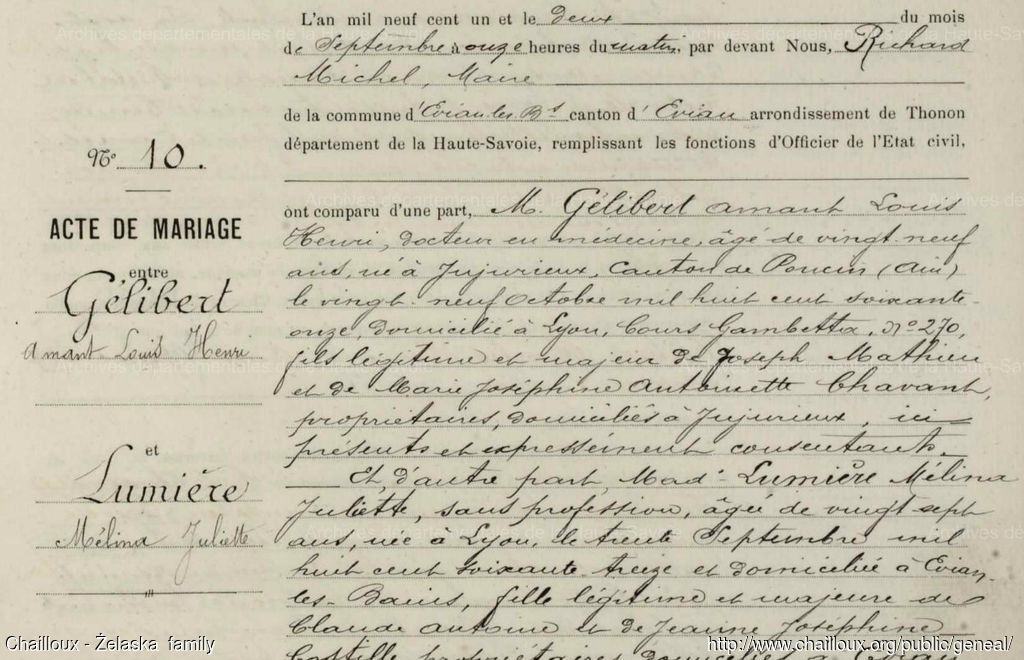 L'an mil neuf cent un et le deux du mois
de Septembre à onze heures du matin, par devant Nous, Richard
Michel, Maire
de la commune d'Evian les Bs canton d'Evian arrondissement de Thonon
département de la Haute-Savoie, remplissant les fonctions d'Officier de l'Etat civil,
N° 10.
ACTE DE MARIAGE
entre
Gélibert
Amant Louis Henri
et
Lumière
Mélina Juliette
ont comparu d'une part, M. Gélibert Amant Louis
Henri, docteur en médecine, âgé de vingt-neuf
ans, né à Jujurieux, Canton de Poncin (Ain)
le vingt-neuf Octobre mil huit cent soixante-
onze, domicilié à Lyon, Cours Gambetta, N° 270,
fils légitime et majeur de Joseph Mathieu
et de Marie Joséphine Antoinette Chavant,
propriétaires, domiciliés à Jujurieux, ici
présents et expressément consentants.
Et, d'autre part, Mad. Lumière Mélina
Juliette, sans profession, âgée de vingt-sept
ans, née à Lyon, le trente Septembre mil
huit cent soixante-treize et domiciliée à Evian-
les-Bains, fille légitime et majeure de
Claude Antoine et de Jeanne Joséphine
Costille propriétaires domiciliés à Evian
Chailloux - Želaska family
http://www.chailloux.org/public/geneal/